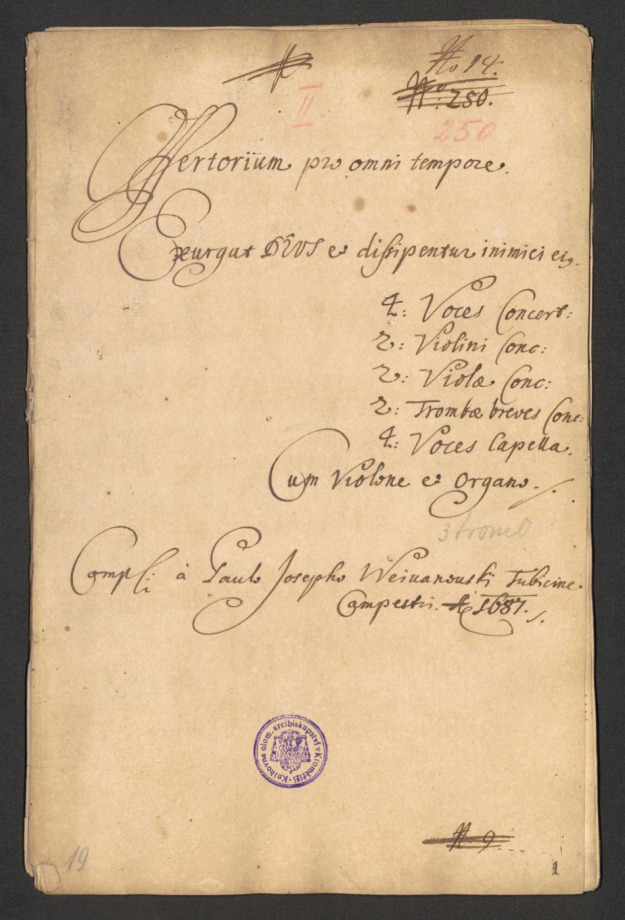 No 14.
No: 250.
II
250
Offertorium pro omni tempore.
Exurgat DEUS et dissipentur inimici ei9.
4: Voces Concert:
2: Violini Conc:
2: Violæ Conc:
2: Trombæ breves Conc:
4: Voces Capella.
Cum Violone et Organo.
Compli à Paulo Josepho Weiuanouski Tubicine
Campestri. A 1687.
Knihovna olom. arcibiskupství v Kroměříži
N. 9
19
1